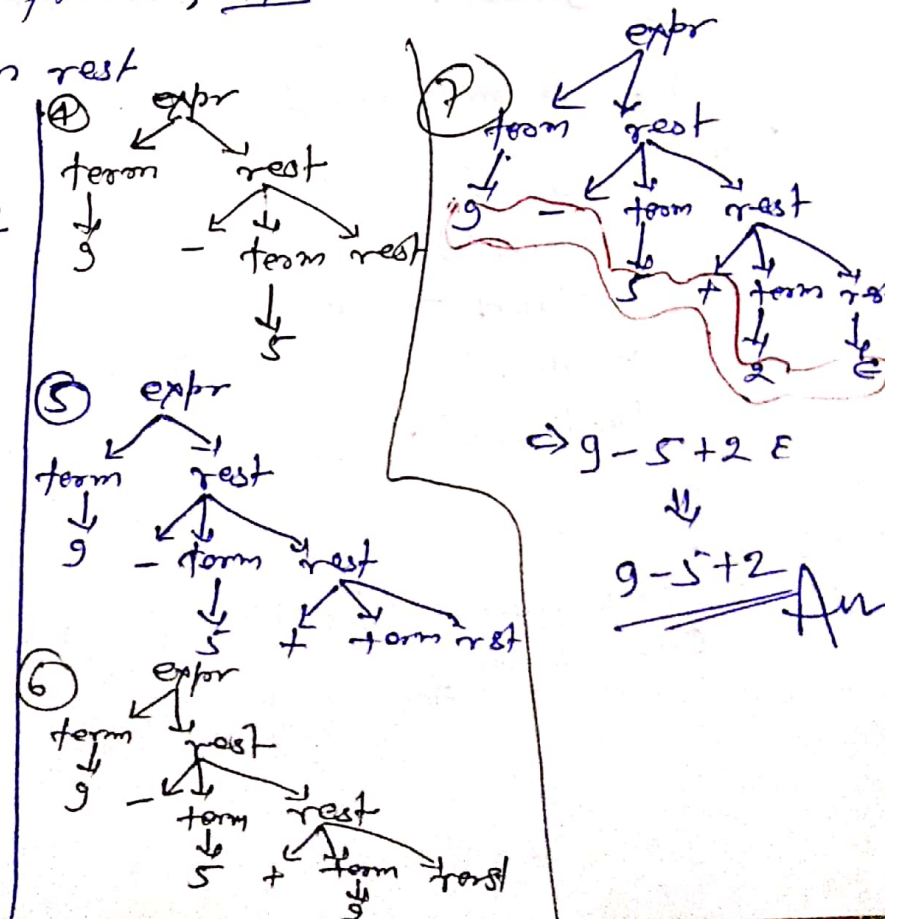 rest
④ expr
term rest
9 - term rest
5
⑤ expr
term rest
9 - term rest
5 + term rst
⑥ expr
term rest
9 - term rest
5 + term
9
⑦ expr
term rest
9 - term rest
5 + term
2 ε
⇒ 9-5+2 ε
⇓
9-5+2